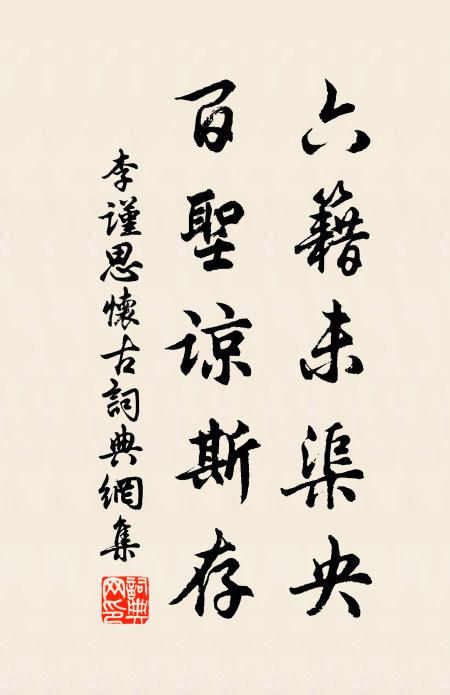 六籍未渠央
百聖谅斯存
李謹思懷古詞典網集
詞典网印